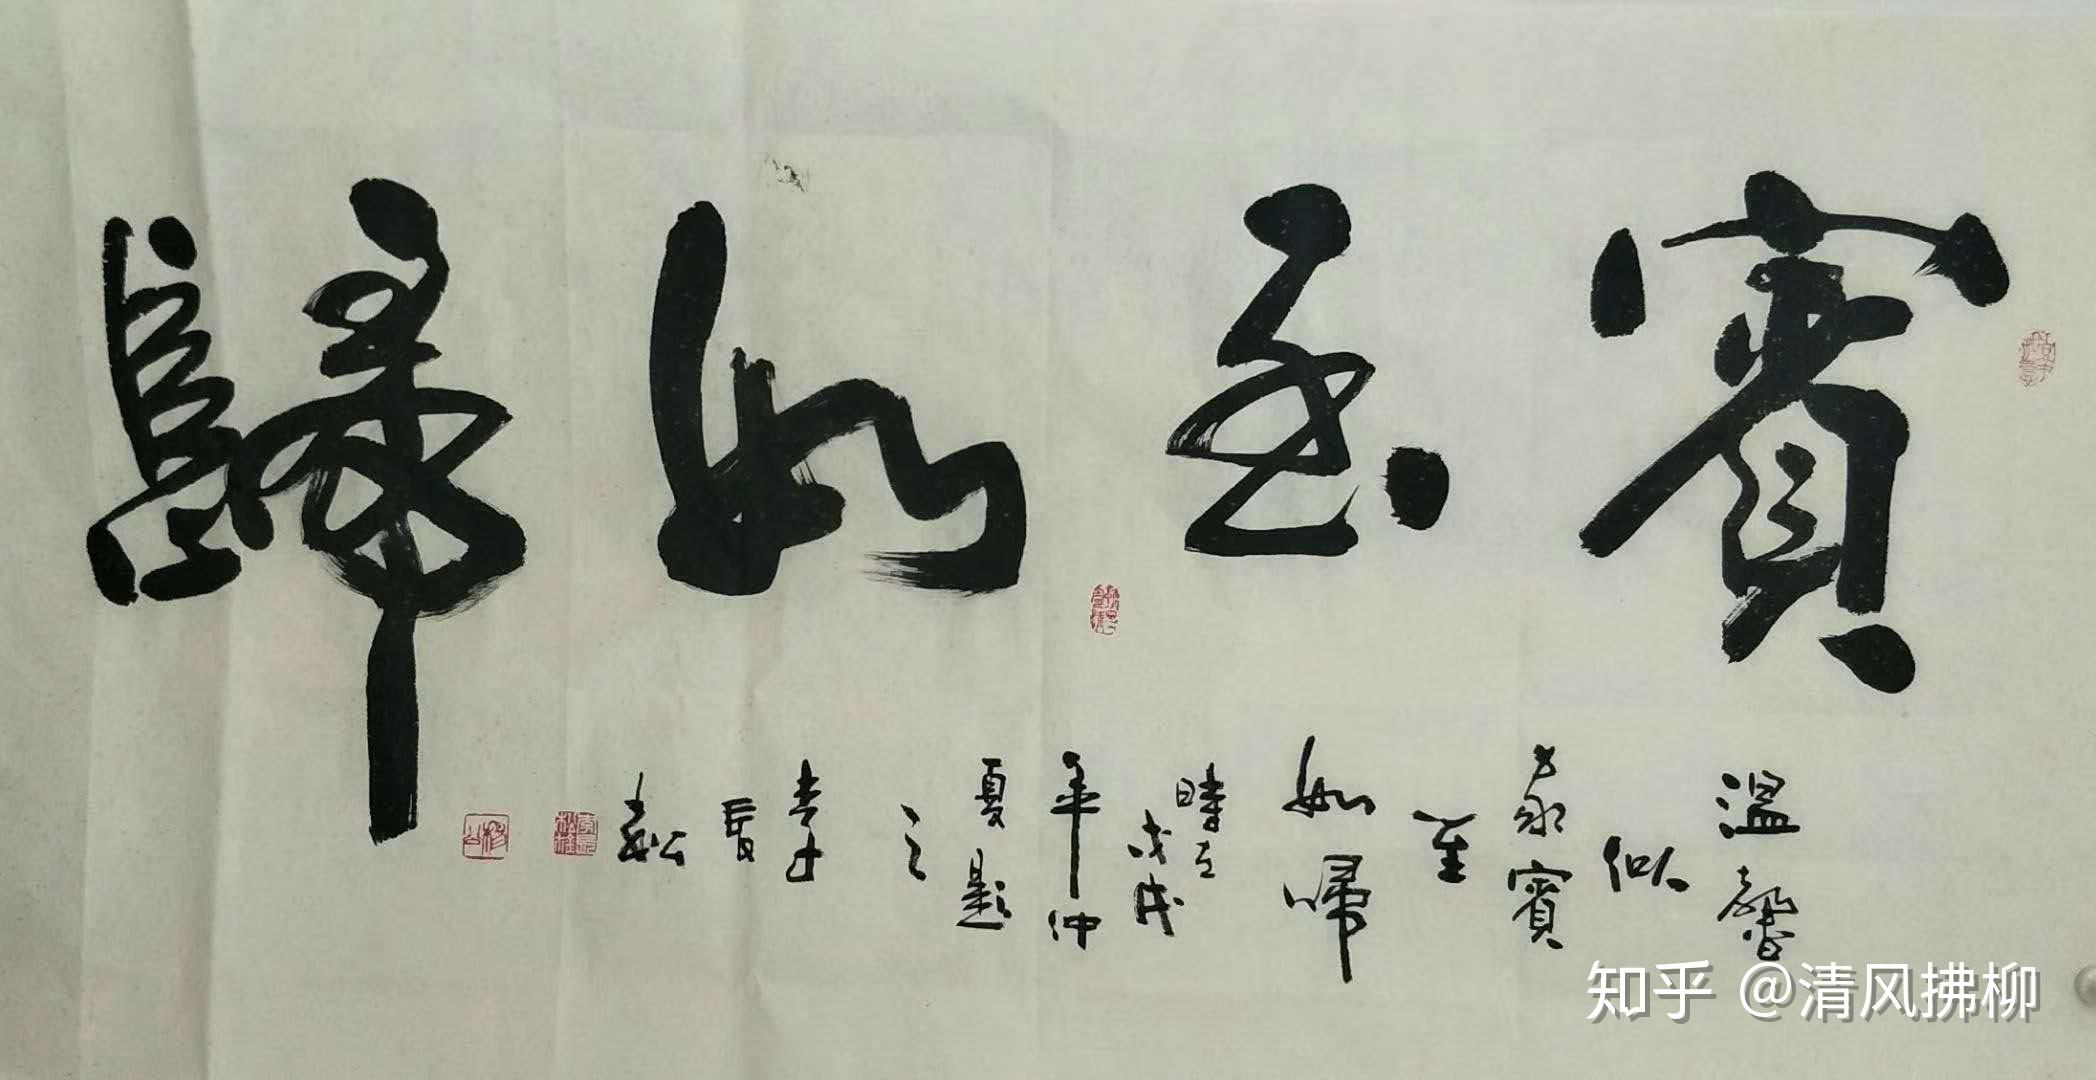 賓至如歸
溫馨
似
家賓
至
如歸
時在
戊戌
年仲
夏題
之
李
長
松
知乎 @清风拂柳